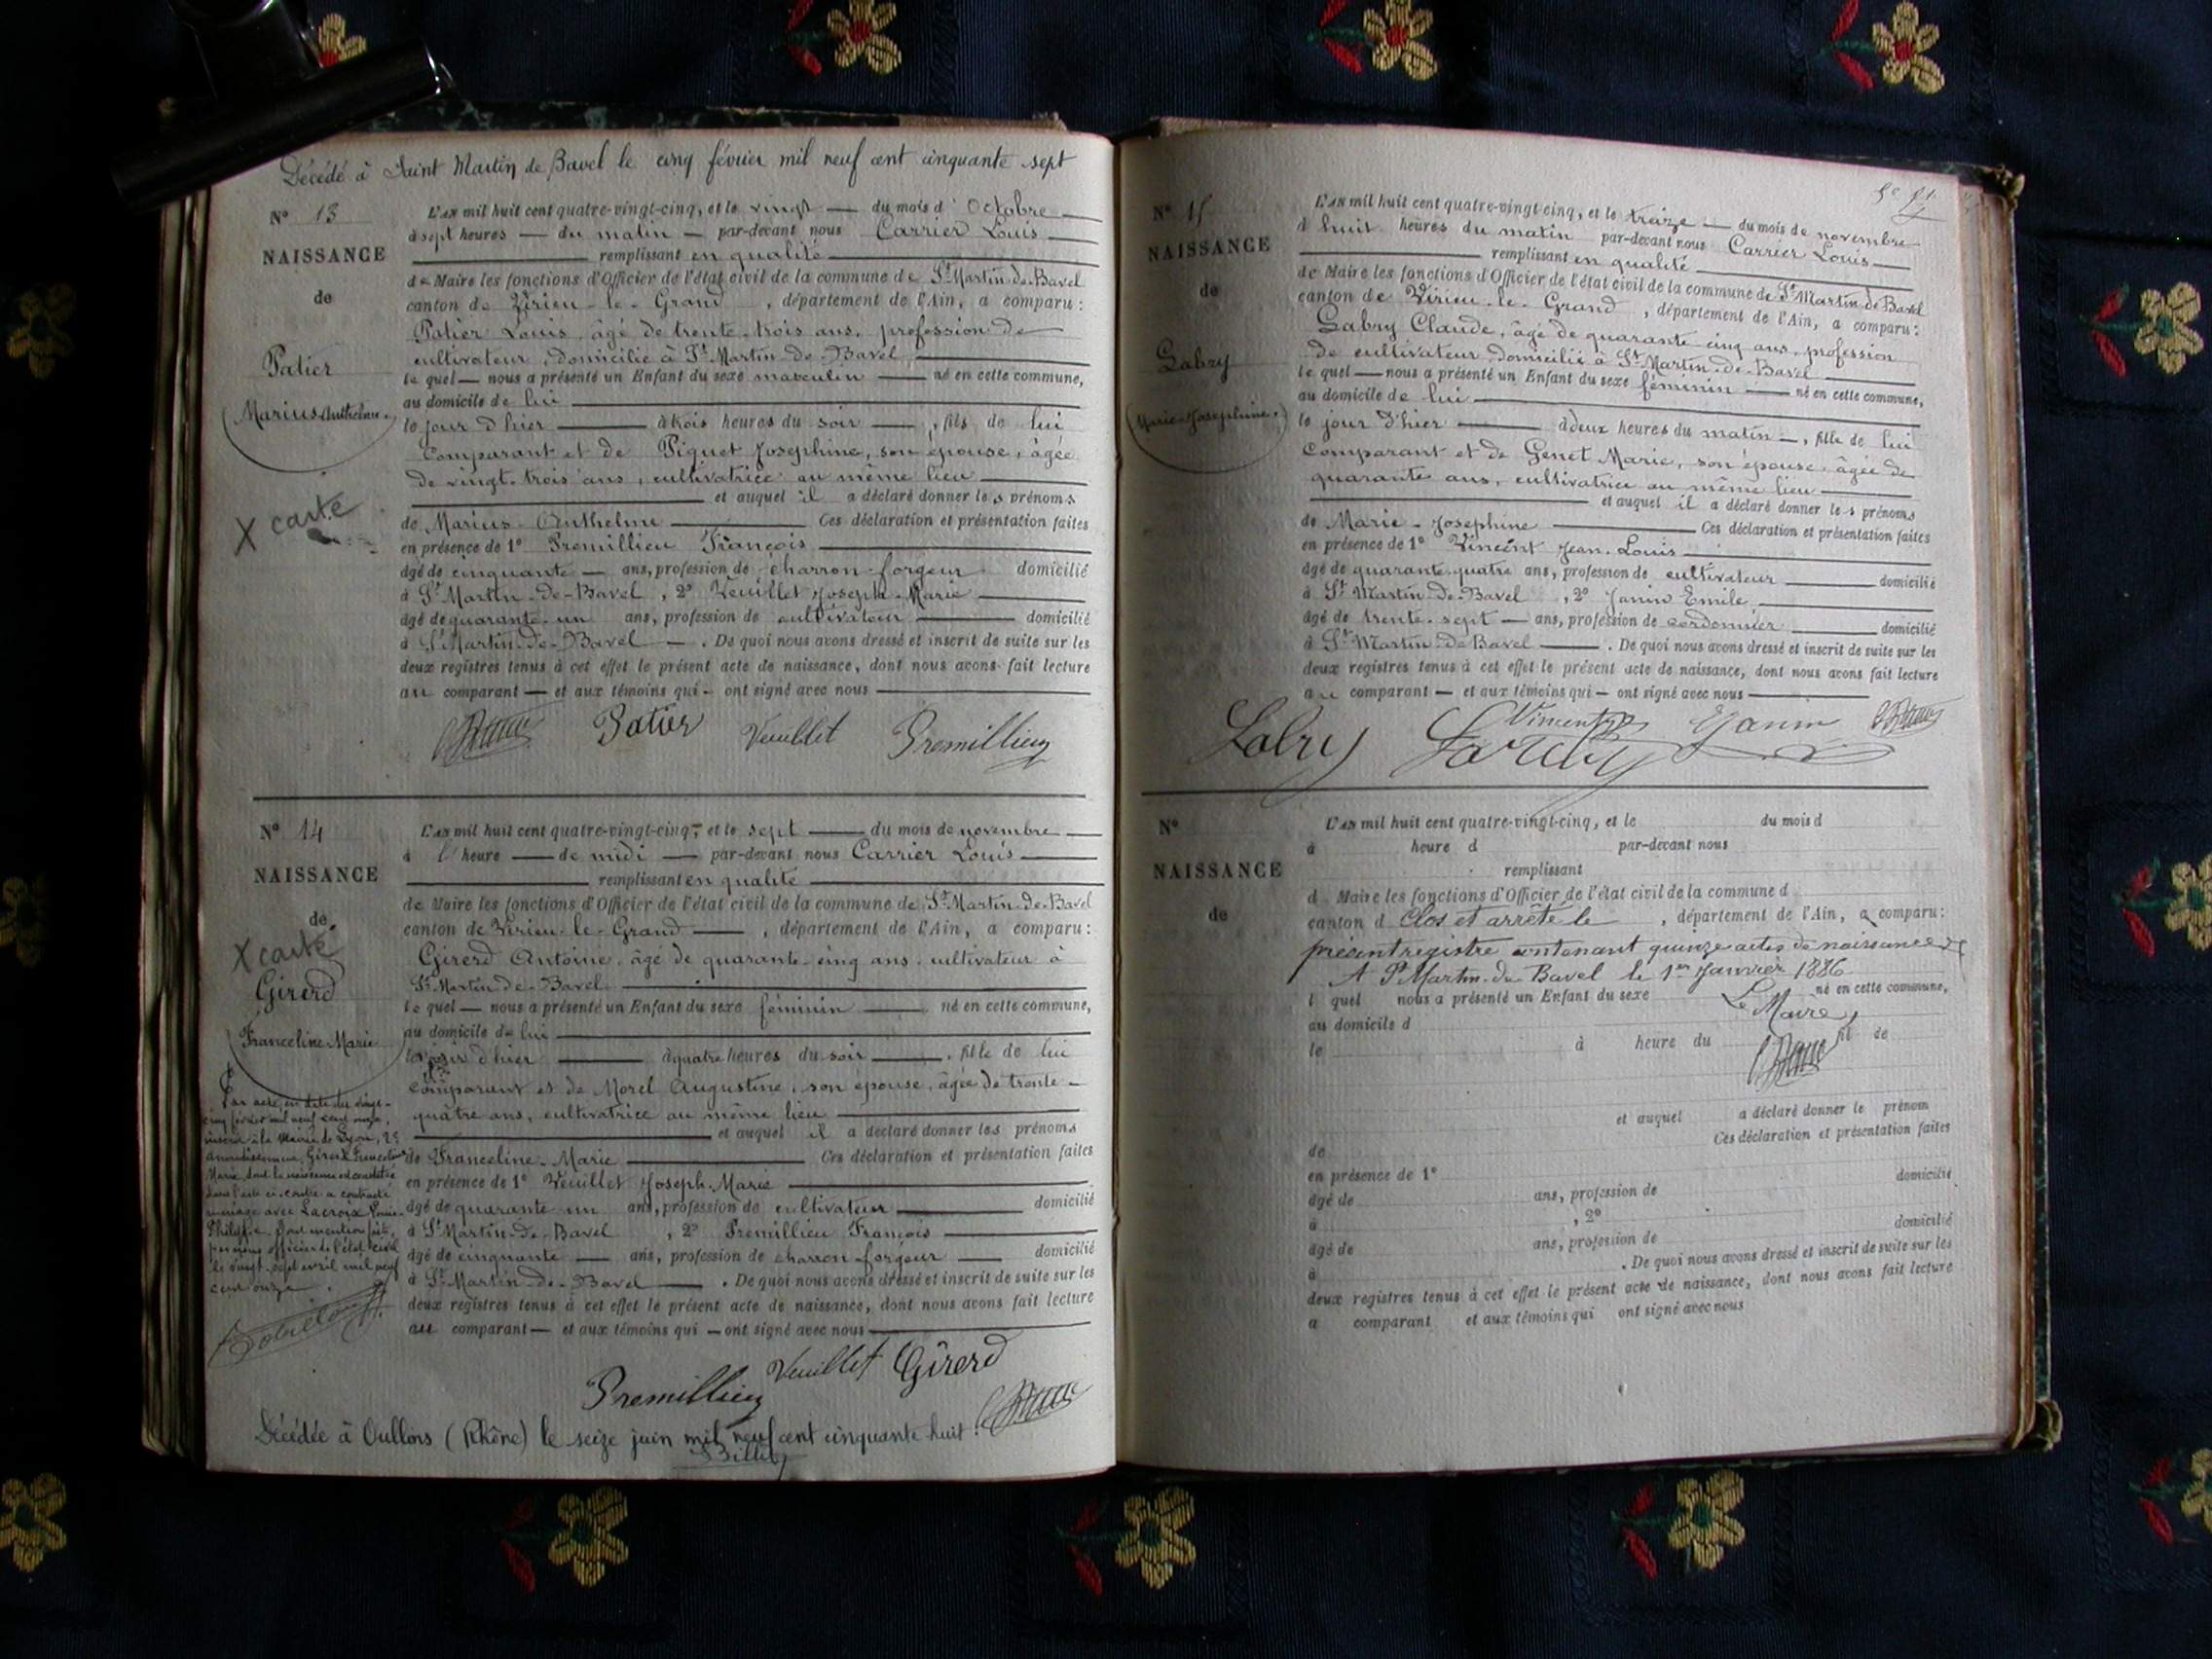 Décédé à Saint Martin de Bavel le cinq février mil neuf cent cinquante sept
N° 13
NAISSANCE
de
Patier
Marius Anthelme.
X carte
L'AN mil huit cent quatre-vingt-cinq, et le vingt — du mois d' Octobre —
à sept heures — du matin — par-devant nous Carrier Louis —
remplissant en qualité
de Maire les fonctions d'Officier de l'état civil de la commune de St Martin-de-Bavel
canton de Virieu-le-Grand , département de l'Ain, a comparu :
Patier Louis, âgé de trente-trois ans, profession de
cultivateur, domicilié à St Martin-de-Bavel
le quel — nous a présenté un Enfant du sexe masculin — né en cette commune,
au domicile de lui
le jour d'hier — à trois heures du soir — , fils de lui
comparant et de Piguet Josephine, son épouse, âgée
de vingt-trois ans, cultivatrice au même lieu
et auquel il a déclaré donner les prénoms
de Marius-Anthelme — Ces déclaration et présentation faites
en présence de 1° Premillieu François
âgé de cinquante — ans, profession de charron-forgeur domicilié
à St Martin-de-Bavel , 2° Veuillet Joseph-Marie
âgé de quarante-un ans, profession de cultivateur — domicilié
à St Martin-de-Bavel — . De quoi nous avons dressé et inscrit de suite sur les
deux registres tenus à cet effet le présent acte de naissance, dont nous avons fait lecture
au comparant — et aux témoins qui — ont signé avec nous
Patier Veuillet Premillieu
N° 14
NAISSANCE
de
X carte
Girerd
Franceline-Marie
Par acte en date du vingt-
cinq février mil neuf cent onze,
inscrit à la Mairie de Lyon, 2e
arrondissement, Girerd Franceline
Marie, dont la naissance est constatée
dans l'acte ci-contre a contracté
mariage avec Lacroix Louis-
Philippe. Dont mention faite,
par nous officier de l'état civil
le vingt-sept avril mil neuf
cent onze.
L'AN mil huit cent quatre-vingt-cinq, et le sept — du mois de novembre —
à l' heure — de midi — par-devant nous Carrier Louis
remplissant en qualité
de Maire les fonctions d'Officier de l'état civil de la commune de St Martin-de-Bavel
canton de Virieu-le-Grand — , département de l'Ain, a comparu :
Girerd Antoine, âgé de quarante-cinq ans, cultivateur à
St Martin-de-Bavel
le quel — nous a présenté un Enfant du sexe féminin — né en cette commune,
au domicile de lui
le jour d'hier — à quatre heures du soir — , fille de lui
comparant et de Morel Augustine, son épouse, âgée de trente-
quatre ans, cultivatrice au même lieu
et auquel il a déclaré donner les prénoms
de Franceline-Marie — Ces déclaration et présentation faites
en présence de 1° Veuillet Joseph-Marie
âgé de quarante un ans, profession de cultivateur — domicilié
à St Martin-de-Bavel , 2° Premillieu François
âgé de cinquante — ans, profession de charron-forgeur — domicilié
à St Martin-de-Bavel — . De quoi nous avons dressé et inscrit de suite sur les
deux registres tenus à cet effet le présent acte de naissance, dont nous avons fait lecture
au comparant — et aux témoins qui — ont signé avec nous
Premillieu Veuillet Girerd
Décédée à Oullins (Rhône) le seize juin mil neuf cent cinquante huit.
N° 15
NAISSANCE
de
Labry
Marie-Josephine.
L'AN mil huit cent quatre-vingt-cinq, et le treize — du mois de novembre
à huit heures du matin par-devant nous Carrier Louis
remplissant en qualité
de Maire les fonctions d'Officier de l'état civil de la commune de St Martin-de-Bavel
canton de Virieu-le-Grand , département de l'Ain, a comparu :
Labry Claude, âgé de quarante-cinq ans, profession
de cultivateur, domicilié à St Martin-de-Bavel
le quel — nous a présenté un Enfant du sexe féminin — né en cette commune,
au domicile de lui
le jour d'hier — à deux heures du matin — , fille de lui
comparant et de Genet Marie, son épouse, âgée de
quarante ans, cultivatrice au même lieu
et auquel il a déclaré donner les prénoms
de Marie-Josephine — Ces déclaration et présentation faites
en présence de 1° Vincent Jean-Louis
âgé de quarante-quatre ans, profession de cultivateur — domicilié
à St Martin-de-Bavel , 2° Janin Emile
âgé de trente-sept — ans, profession de cordonnier — domicilié
à St Martin-de-Bavel — . De quoi nous avons dressé et inscrit de suite sur les
deux registres tenus à cet effet le présent acte de naissance, dont nous avons fait lecture
au comparant — et aux témoins qui — ont signé avec nous
Labry Vincent EJanin
N°
NAISSANCE
de
L'AN mil huit cent quatre-vingt-cinq, et le du mois d
à heure d par-devant nous
remplissant
d Maire les fonctions d'Officier de l'état civil de la commune d
canton d Clos et arrêté le , département de l'Ain, a comparu :
présent registre contenant quinze actes de naissance
A St Martin-de-Bavel le 1er Janvier 1886
l quel nous a présenté un Enfant du sexe né en cette commune,
Le Maire,
au domicile d
le à heure du fil de
et auquel a déclaré donner le prénom
de Ces déclaration et présentation faites
en présence de 1°
âgé de ans, profession de domicilié
à , 2°
âgé de ans, profession de domicilié
à . De quoi nous avons dressé et inscrit de suite sur les
deux registres tenus à cet effet le présent acte de naissance, dont nous avons fait lecture
a comparant et aux témoins qui ont signé avec nous